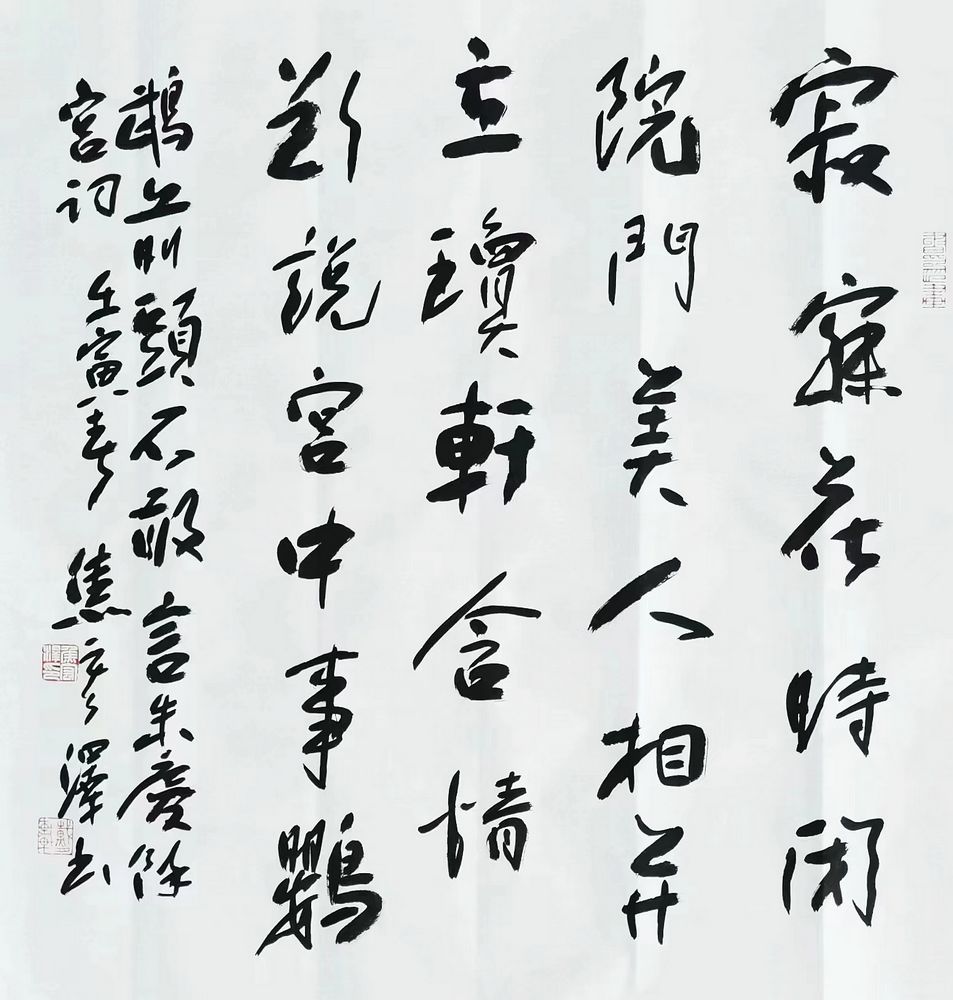 寂寂花時閉
院門美人相并
立瓊軒含情
欲說宮中事鸚
鵡前頭不敢言朱慶馀
宮詞 壬寅春 焦彥澤书